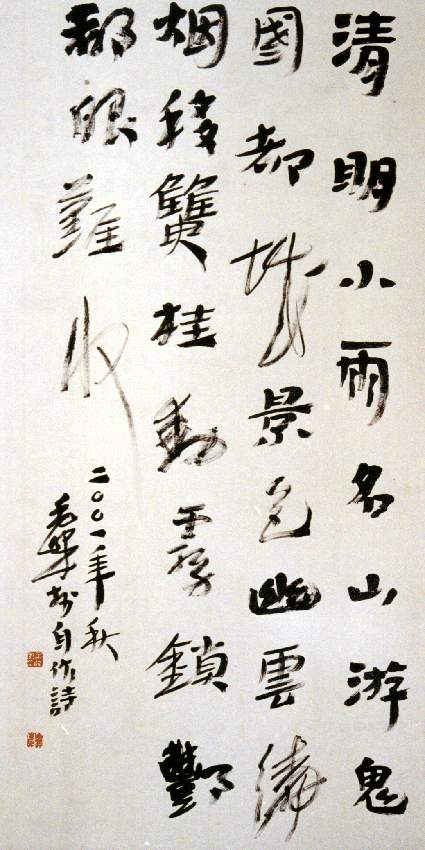 清明小雨名山游鬼
國都城景色幽雲繞
烟移雙桂動霧鎖酆
都眼難收
二〇〇一年秋
自作詩